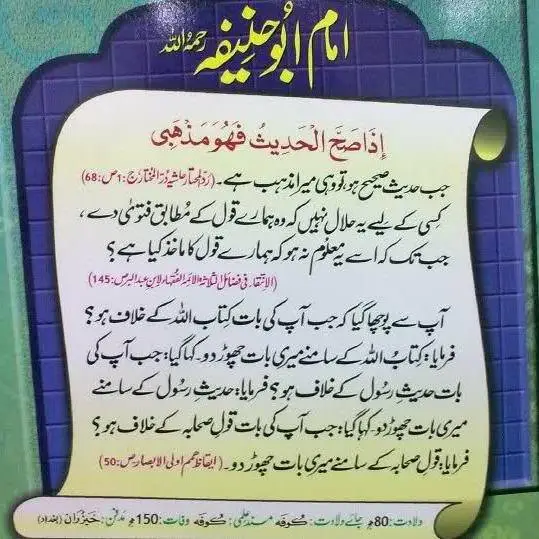 امام ابو حنیفہ رحمہ اللہ
إِذَا صَحَّ الْحَدِيثُ فَهُوَ مَذْهَبِي
جب حدیث صحیح ہو، تو وہی میرا مذہب ہے۔ (ردّ المحتار حاشیہ درّ المختار ج: 1 ص: 68)
کسی کے لیے یہ حلال نہیں کہ وہ ہمارے قول کے مُطابق فتویٰ دے،
جب تک کہ اسے یہ معلوم نہ ہو کہ ہمارے قول کا ماخذ کیا ہے؟
(الانتقاء فی فضائل الثلاثۃ الائمۃ الفقہاء لابن عبد البر ص: 145)
آپ سے پوچھا گیا کہ جب آپ کی بات کِتاب اللہ کے خلاف ہو؟
فرمایا: کِتابُ اللہ کے سامنے میری بات چھوڑ دو۔ کہا گیا: جب آپ کی
بات حدیثِ رسول کے خلاف ہو؟ فرمایا: حدیثِ رسول کے سامنے
میری بات چھوڑ دو۔ کہا گیا: جب آپ کی بات قولِ صحابہ کے خلاف ہو؟
فرمایا: قولِ صحابہ کے سامنے میری بات چھوڑ دو۔ (ایقاظ ھمم اولی الابصار ص: 50)
ولادت: 80ھ جائے ولادت: کُوفہ مسندِ علمی: کُوفہ وفات: 150ھ مدفن: خَیزُران (بغداد)